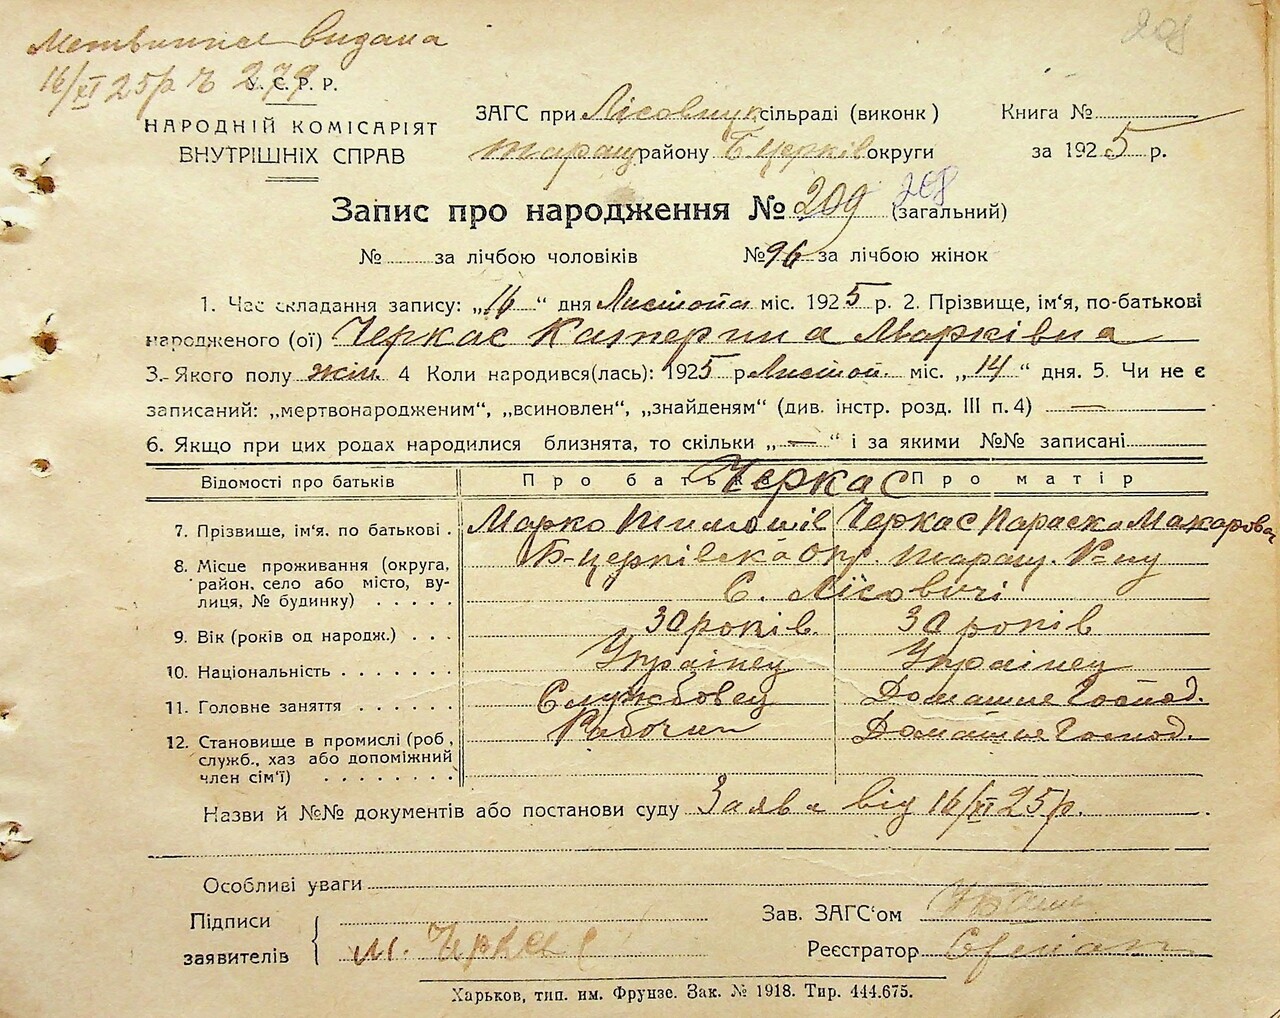 208
Метвитка видана
16/XI 25р № 279
У. С. Р. Р.
НАРОДНІЙ КОМІСАРІЯТ
ВНУТРІШНІХ СПРАВ
ЗАГС при Лісовицк сільраді (виконк)
Книга №
Таращ району Б Церків округи
за 1925 р.
Запис про народження № 209 208 (загальний)
№ за лічбою чоловіків № 96 за лічбою жінок
1. Час складання запису: „16“ дня Листопа міс. 1925 р. 2. Прізвище, ім'я, по-батькові
народженого (ої) Черкас Катерина Марківна
3. Якого полу жін. 4 Коли народився(лась): 1925 р Листоп. міс. „14“ дня. 5. Чи не є
записаний: „мертвонародженим“, „всиновлен“, „знайденям“ (див. інстр. розд. III п. 4) —
6. Якщо при цих родах народилися близнята, то скільки „—“ і за якими №№ записані
Відомості про батьків Про батька Про матір
Черкас
7. Прізвище, ім'я, по батькові . Марко Тимофіїв Черкас Параска Макарова
8. Місце проживання (округа, Б-церківська Окр. Таращ. Р-ну
район, село або місто, ву-
лиця, № будинку) . . . . . С. Лісовичі
9. Вік (років од народж.) . . . 30 років. 30 років
10. Національність . . . . . . . Українец Українец
11. Головне заняття . . . . . . Службовец Домашне Господ.
12. Становище в промислі (роб., Рабочий Домашне Господ.
служб., хаз або допоміжний
член сім'ї) . . . . . . . .
Назви й №№ документів або постанови суду Заява від 16/XI 25р.
Особливі уваги
Підписи
заявителів
М. Черкас
Зав. ЗАГС'ом
Реєстратор
Харьков, тип. им. Фрунзе. Зак. № 1918. Тир. 444.675.